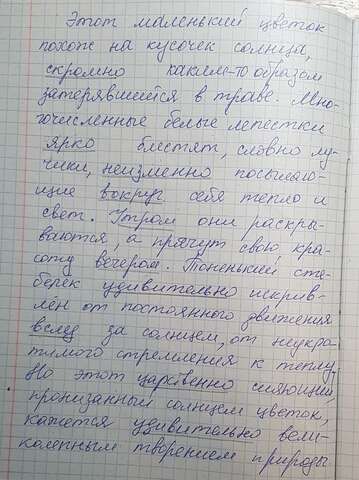 Этот маленький цветок
похож на кусочек солнца,
скромно каким-то образом
затерявшийся в траве. Мно-
гочисленные белые лепестки
ярко блестят, словно лу-
чики, неизменно посылаю-
щие вокруг себя тепло и
свет. Утром они раскры-
ваются, а прячут свою кра-
соту вечером. Тоненький сте-
белек удивительно искрив-
лён от постоянного движения
вслед за солнцем, от неукра-
тимого стремления к теплу.
Но этот царственно сияющий,
пронизанный солнцем цветок,
кажется удивительно вели-
колепным творением природы